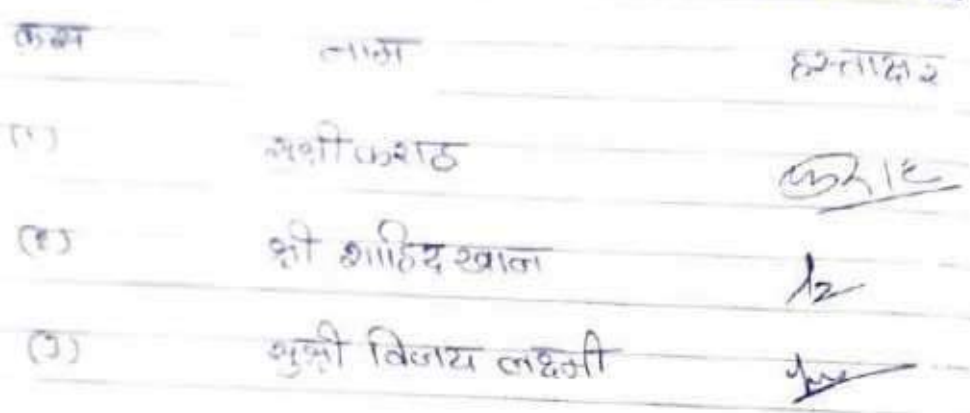 क्रम नाम हस्ताक्षर
(१) सुश्री कराठ कराठ
(२) श्री शाहिद खान
(३) सुश्री विजय लक्ष्मी